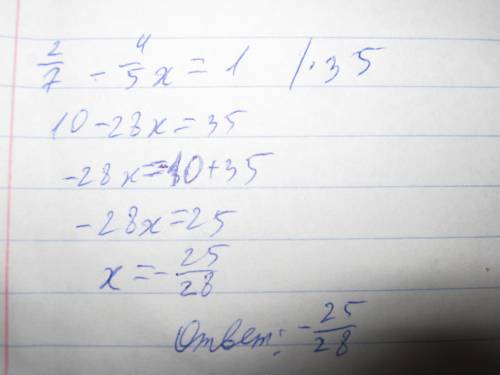 2/7 - 4/5 x = 1 /·35
10 - 28x = 35
-28x = -10 + 35
-28x = 25
x = - 25/28
Ответ: - 25/28